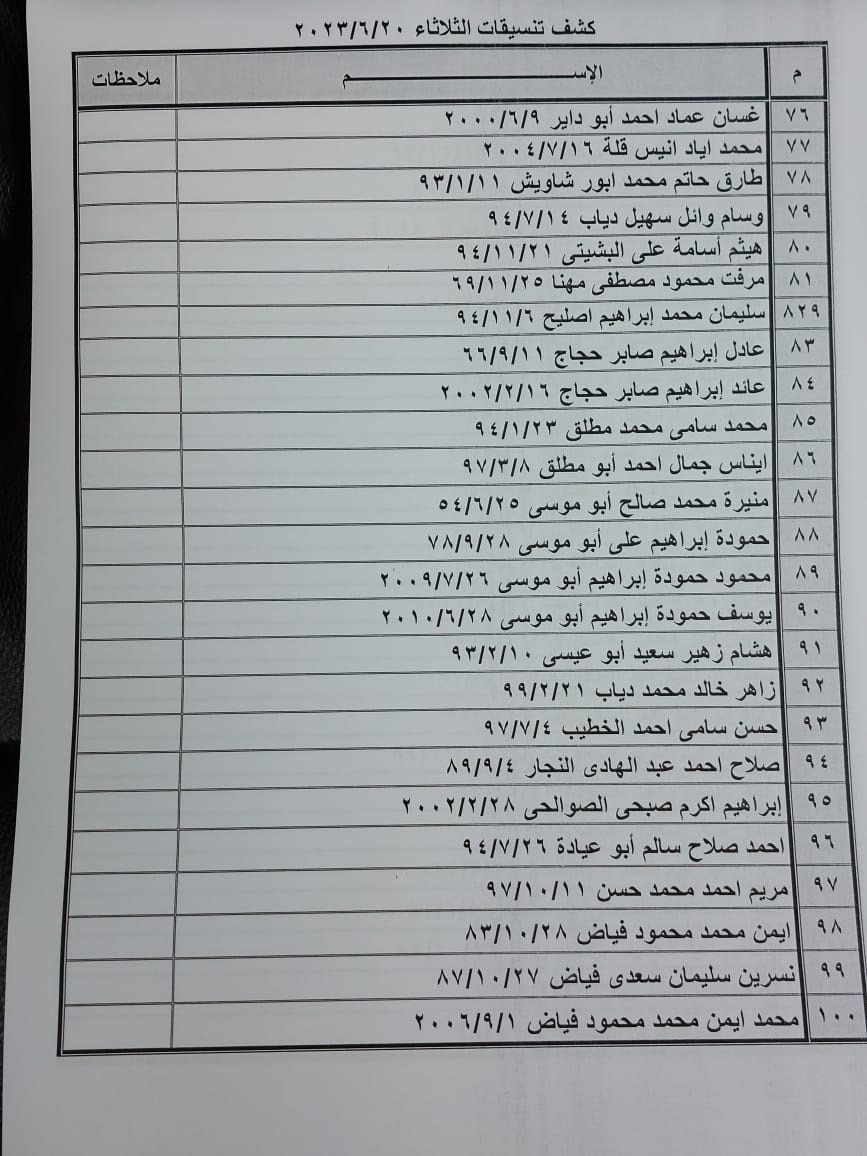 كشف تنسيقات الثلاثاء ٢٠٢٣/٦/٢٠
م الإســـــــم ملاحظات
٧٦ غسان عماد احمد أبو داير ٢٠٠٠/٦/٩
٧٧ محمد اياد انيس قلة ٢٠٠٤/٧/١٦
٧٨ طارق حاتم محمد ابور شاويش ٩٣/١/١١
٧٩ وسام وائل سهيل دياب ٩٤/٧/١٤
٨٠ هيثم أسامة على البشيتى ٩٤/١١/٢١
٨١ مرفت محمود مصطفى مهنا ٦٩/١١/٢٥
٨٢٩ سليمان محمد إبراهيم اصليح ٩٤/١١/٦
٨٣ عادل إبراهيم صابر حجاج ٦٦/٩/١١
٨٤ عائد إبراهيم صابر حجاج ٢٠٠٢/٢/١٦
٨٥ محمد سامى محمد مطلق ٩٤/١/٢٣
٨٦ ايناس جمال احمد أبو مطلق ٩٧/٣/٨
٨٧ منيرة محمد صالح أبو موسى ٥٤/٦/٢٥
٨٨ حمودة إبراهيم على أبو موسى ٧٨/٩/٢٨
٨٩ محمود حمودة إبراهيم أبو موسى ٢٠٠٩/٧/٢٦
٩٠ يوسف حمودة إبراهيم أبو موسى ٢٠١٠/٦/٢٨
٩١ هشام زهير سعيد أبو عيسى ٩٣/٢/١٠
٩٢ زاهر خالد محمد دياب ٩٩/٢/٢١
٩٣ حسن سامى احمد الخطيب ٩٧/٧/٤
٩٤ صلاح احمد عبد الهادى النجار ٨٩/٩/٤
٩٥ إبراهيم اكرم صبحى الصوالحى ٢٠٠٢/٢/٢٨
٩٦ احمد صلاح سالم أبو عيادة ٩٤/٧/٢٦
٩٧ مريم احمد محمد حسن ٩٧/١٠/١١
٩٨ ايمن محمد محمود فياض ٨٣/١٠/٢٨
٩٩ نسرين سليمان سعدى فياض ٨٧/١٠/٢٧
١٠٠ محمد ايمن محمد محمود فياض ٢٠٠٦/٩/١